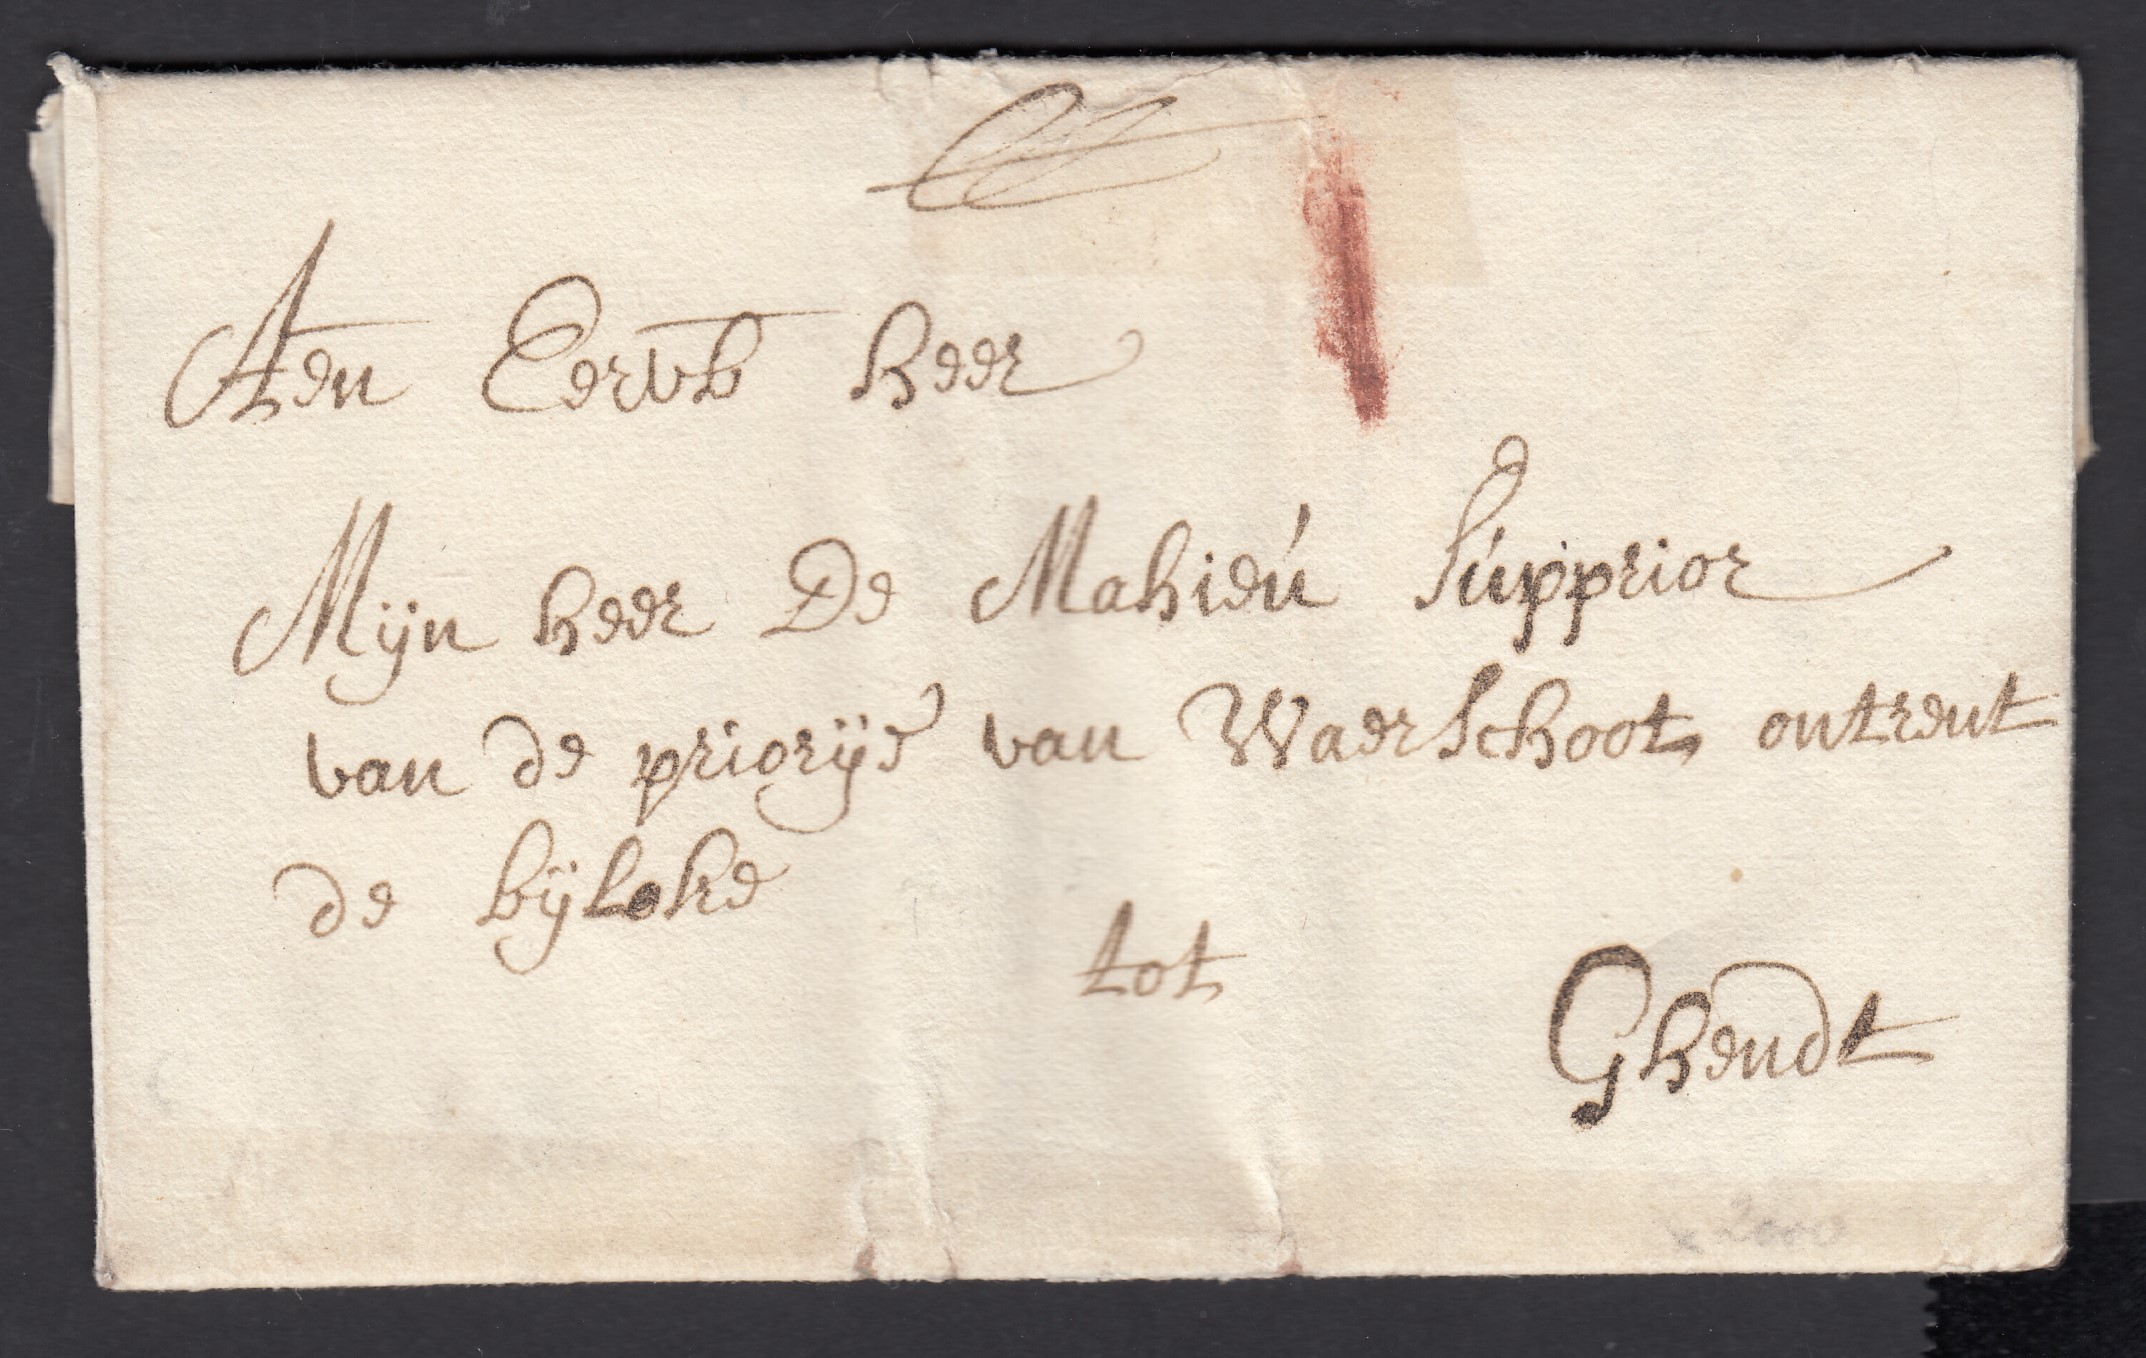 Aen Eerwb heer
Mijn heer De Mahieú Súpprior
van de priorije van Waerschoot ontrent
de bijloke
tot
Ghendt